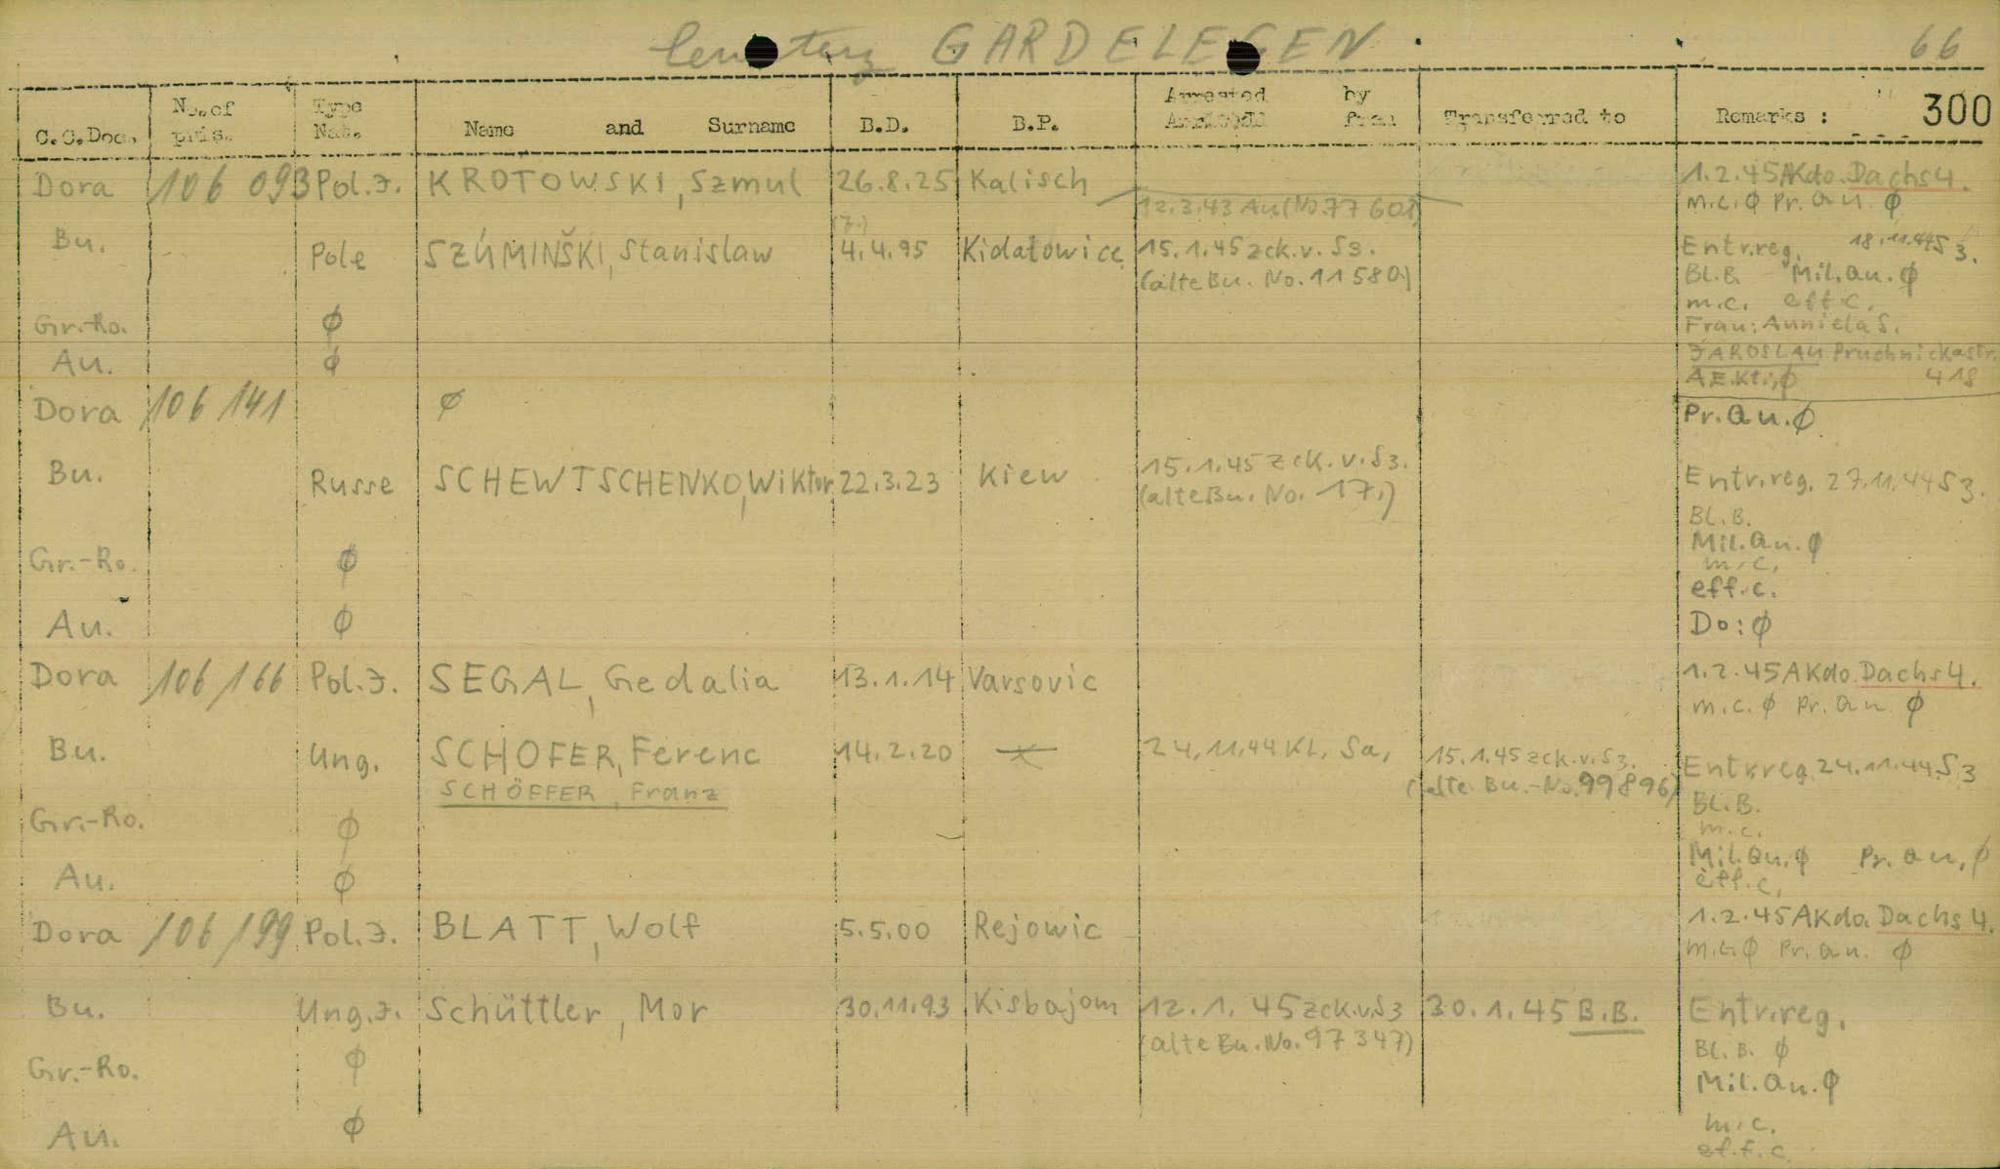 Cemetery GARDELEGEN 66
C.C.Doc. No. of pris. Type Nat. Name and Surname B.D. B.P. Arrested by from Transferred to Remarks : 300
Dora 106 093 Pol.J. KROTOWSKI, Szmul 26.8.25 Kalisch 12.3.43 Au (No. 77 601) 1.2.45 AKdo. Dachs 4.
m.c. Ø Pr. au. Ø
Bu. Pole SZÚMINŠKI, Stanislaw (7.) 4.4.95 Kidałowice 15.1.45 zck.v. S3. Entr.reg. 18.11.44 S3.
(alte Bu. No. 11580) Bl.B. Mil.au. Ø
m.c. eff.c.
Gr.-Ro. Ø Frau: Anniela S.
Au. Ø JAROSLAU Pruchnickastr.
AE.Kt.: Ø 418
Dora 106 141 Ø Pr.au. Ø
Bu. Russe SCHEWTSCHENKO, Wiktor 22.3.23 Kiew 15.1.45 zck.v. S3. Entr.reg. 27.11.44 S3.
(alte Bu. No. 17.)
Bl.B.
Mil.au. Ø
Gr.-Ro. Ø m.c.
eff.c.
Au. Ø Do: Ø
Dora 106 166 Pol.J. SEGAL, Gedalia 13.1.14 Varsovic 1.2.45 AKdo. Dachs 4.
m.c. Ø Pr. au. Ø
Bu. Ung. SCHOFER, Ferenc 14.2.20 24.11.44 KL. Sa. 15.1.45 zck.v. S3. Entr.reg. 24.11.44 S3
SCHÖFFER, Franz (alte Bu.-No. 99896)
Bl.B.
Gr.-Ro. Ø m.c.
Mil.au. Ø Pr. au. Ø
Au. Ø eff.c.
Dora 106 199 Pol.J. BLATT, Wolf 5.5.00 Rejowic 1.2.45 AKdo. Dachs 4.
m.c. Ø Pr. au. Ø
Bu. Ung.J. Schüttler, Mor 30.11.93 Kisbajom 12.1.45 zck.v. S3 30.1.45 B.B. Entr.reg.
(alte Bu. No. 97347) Bl.B. Ø
Gr.-Ro. Ø Mil.au. Ø
Au. Ø m.c.
ef.f.c.